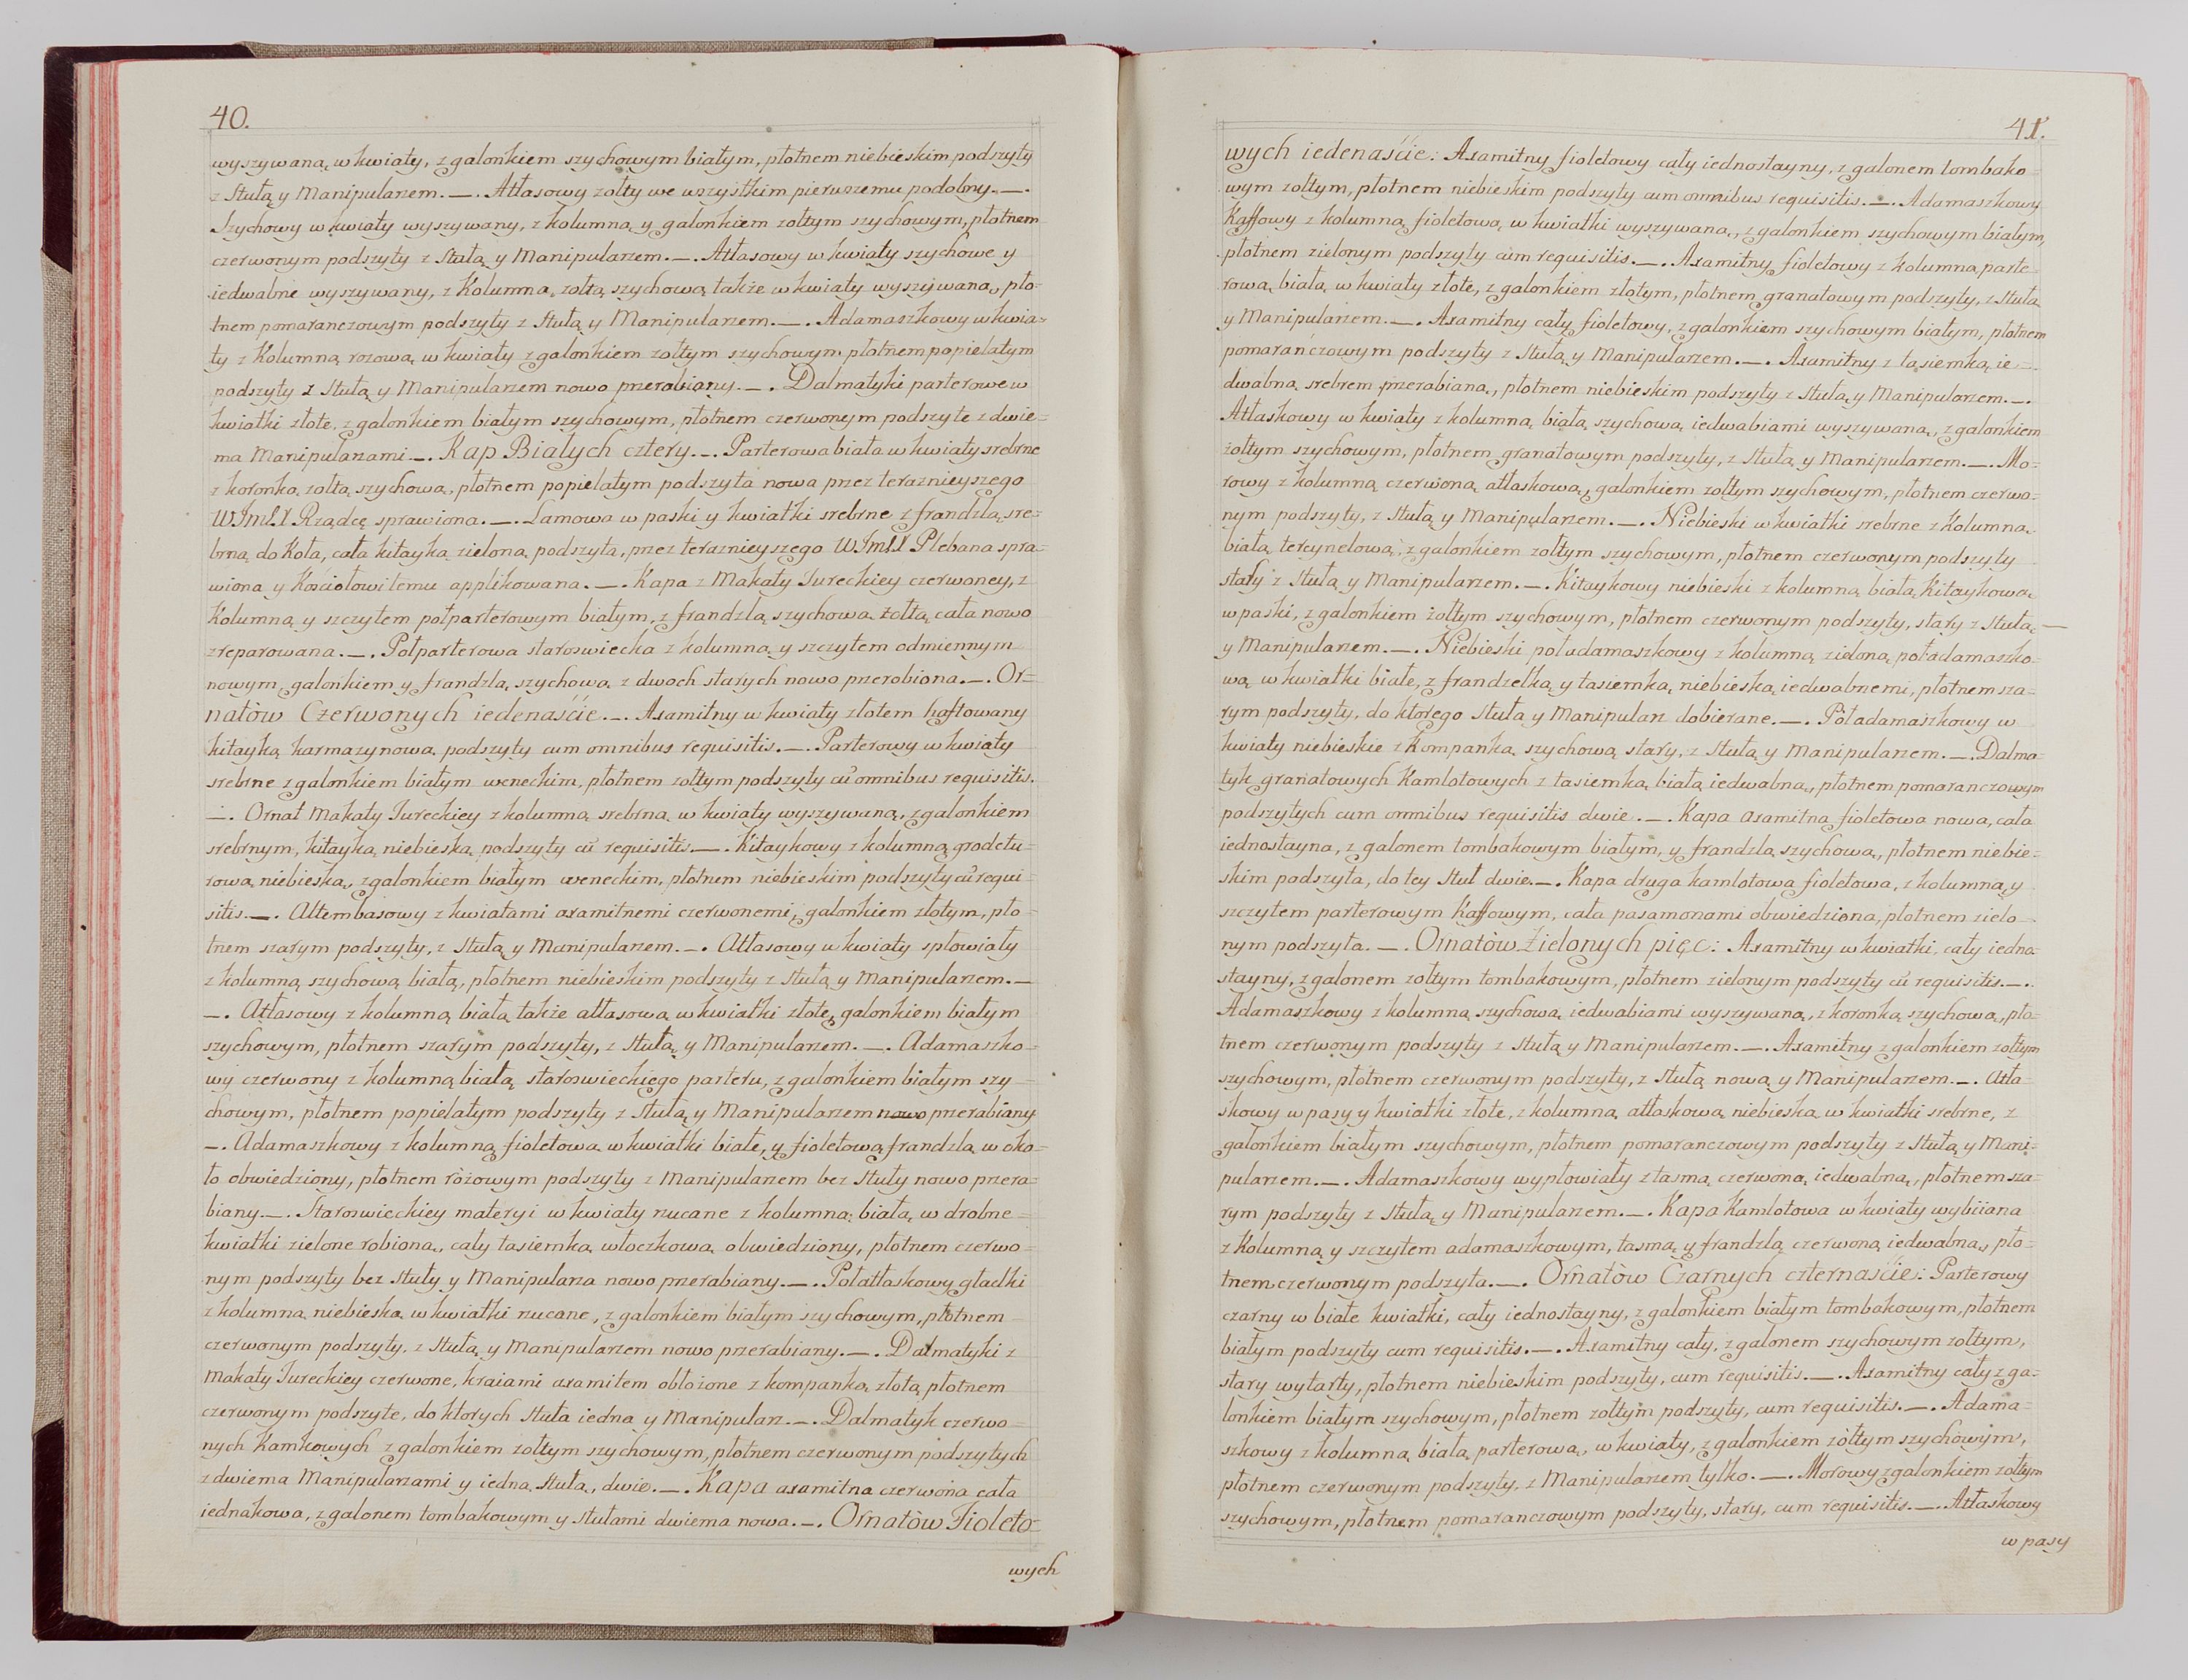 40.
wyszywaną w kwiaty, z galonkiem szychowym białym, płotnem niebieskim podszyty
z Stułą y Manipularzem. —. Atłasowy zołty we wszystkim pierwszemu podobny. —.
Szychowy w kwiaty wyszywany, z kolumną y galonkiem zołtym szychowym, płotnem
czerwonym podszyty z Stułą y Manipularzem. —. Atłasowy w kwiaty szychowe y
iedwabne wyszywany, z Kolumną zołtą szychową także w kwiaty wyszywaną, pło-
tnem pomaranczowym podszyty z Stułą y Manipularzem. —. Adamaszkowy w kwia-
ty z Kolumną rozową w kwiaty z galonkiem zołtym szychowym płotnem popielatym
podszyty z Stułą y Manipularzem nowo przerabiany. —. Dalmatyki parterowe w
kwiatki złote, z galonkiem białym szychowym, płotnem czerwonym podszyte z dwie=
ma Manipularzami —. Kap Białych cztery. —. Parterowa biała w kwiaty srebrne
z koronką zołtą szychową, płotnem popielatym podszyta nowa przez teraznieyszego
WJmX Rządcę sprawiona. —. Lamowa w paski y kwiatki srebrne z frandzlą sre=
brną do Koła, cała kitayką zieloną podszyta, przez teraznieyszego WJmX Plebana spra=
wiona y Kościołowi temu applikowana. —. Kapa z Makaty Tureckiey czerwoney, z
Kolumną y szczytem połparterowym białym, z frandzlą szychową żołtą cała nowo
zreparowana. —. Połparterowa staroswiecka z kolumną y szczytem odmiennym
nowym, galonkiem y frandzlą szychową z dwoch starych nowo przerobiona. —. Or=
natòw Czerwonych iedenaście. —. Axamitny w kwiaty złotem haftowany
kitayką karmazynową podszyty cum omnibus requisitis. —. Parterowy w kwiaty
srebrne z galonkiem białym weneckim, płotnem zołtym podszyty cū omnibus requisitis.
—. Ornat Makaty Tureckiey z kolumną srebrną w kwiaty wyszywaną, z galonkiem
srebrnym, kitayką niebieską podszyty cū requisitis. —. Kitaykowy z kolumną grodetu=
rową niebieską, z galonkiem białym weneckim, płotnem niebieskim podszyty cū requi=
sitis. —. Altembasowy z kwiatami axamitnemi czerwonemi, galonkiem złotym, pło=
tnem szarym podszyty, z Stułą y Manipularzem. —. Atłasowy w kwiaty spłowiały
z kolumną szychową białą, płotnem niebieskim podszyty z Stułą y Manipularzem. —
—. Atłasowy z kolumną białą także atłasową w kwiatki złote, galonkiem białym
szychowym, płotnem szarym podszyty, z Stułą y Manipularzem. —. Adamaszko=
wy czerwony z kolumną białą staroswieckiego parteru, z galonkiem białym szy=
chowym, płotnem popielatym podszyty z Stułą y Manipularzem nowo przerabiany
—. Adamaszkowy z kolumną fioletową w kwiatki białe, y fioletową frandzlą w oko=
ło obwiedziony, płotnem różowym podszyty z Manipularzem bez Stuły nowo przera=
biany. —. Staroswieckiey materyi w kwiaty rzucane z kolumną białą w drobne=
kwiatki zielone robioną, cały tasiemką włoczkową obwiedziony, płotnem czerwo=
nym podszyty bez Stuły y Manipularza nowo przerabiany. —. Połatłaskowy gładki
z kolumną niebieską w kwiatki rzucane, z galonkiem białym szychowym, płotnem
czerwonym podszyty, z Stułą y Manipularzem nowo przerabiany. —. Dalmatyki z
Makaty Tureckiey czerwone, kraiami axamitem obłożone z kompanką złotą płotnem
czerwonym podszyte, do ktorych Stuła iedna y Manipularz. —. Dalmatyk czerwo=
nych Kamkowych z galonkiem zołtym szychowym, płotnem czerwonym podszytych
z dwiema Manipularzami y iedną Stułą, dwie. —. Kapa axamitna czerwona cała
iednakowa, z galonem tombakowym y stułami dwiema nowa. —. Ornatòw Fioleto=
wych
41.
wych iedenaście: Axamitny fioletowy cały iednostayny, z galonem tombako=
wym zołtym, płotnem niebieskim podszyty cum omnibus requisitis. —. Adamaszkowy
Kaffowy z kolumną fioletową w kwiatki wyszywaną, z galonkiem szychowym białym,
płotnem zielonym podszyty cum requisitis. —. Axamitny fioletowy z kolumną parte=
rową białą w kwiaty złote, z galonkiem złotym, płotnem granatowym podszyty, z Stułą
y Manipularzem. —. Axamitny cały fioletowy, z galonkiem szychowym białym, płotnem
pomarańczowym podszyty z Stułą y Manipularzem. —. Axamitny z tasiemką ie=
dwabną srebrem przerabianą, płotnem niebieskim podszyty z Stułą y Manipularzem. —.
Atłaskowy w kwiaty z kolumną białą szychową iedwabiami wyszywaną, z galonkiem
żołtym szychowym, płotnem granatowym podszyty, z Stułą y Manipularzem. —. Mo=
rowy z kolumną czerwoną atłaskową, galonkiem zołtym szychowym, płotnem czerwo=
nym podszyty, z Stułą y Manipularzem. —. Niebieski w kwiatki srebrne z Kolumną
białą tercynelową, z galonkiem zołtym szychowym, płotnem czerwonym podszyty
stary z Stułą y Manipularzem. —. Kitaykowy niebieski z kolumną białą Kitaykową
w paski, z galonkiem żołtym szychowym, płotnem czerwonym podszyty, stary z Stułą —
y Manipularzem. —. Niebieski poładamaszkowy z kolumną zieloną poładamaszko=
wą w kwiatki białe, z frandzelką y tasiemką niebieską iedwabnemi, płotnem sza=
rym podszyty, do ktorego Stuła y Manipularz dobierane. —. Poładamaszkowy w
kwiaty niebieskie z Kompanką szychową stary, z Stułą y Manipularzem. —. Dalma=
tyk granatowych Kamlotowych z tasiemką białą iedwabną, płotnem pomaranczowym
podszytych cum omnibus requisitis dwie. —. Kapa axamitna fioletowa nowa, cała
iednostayna, z galonem tombakowym białym, y frandzlą szychową, płotnem niebie=
skim podszyta, do tey Stuł dwie. —. Kapa druga kamlotowa fioletowa, z kolumną y
szczytem parterowym Kaffowym, cała pasamonami obwiedziona, płotnem zielo=
nym podszyta. —. Ornatòw Zielonych pięc: Axamitny w kwiatki, cały iedno=
stayny, z galonem zołtym tombakowym, płotnem zielonym podszyty cū requisitis. —.
Adamaszkowy z kolumną szychową iedwabiami wyszywaną, z koronką szychową, pło=
tnem czerwonym podszyty z Stułą y Manipularzem. —. Axamitny z galonkiem zołtym
szychowym, płotnem czerwonym podszyty, z Stułą nową y Manipularzem. —. Atła=
skowy w pasy y kwiatki złote, z kolumną atłaskową niebieską w kwiatki srebrne, z
galonkiem białym szychowym, płotnem pomaranczowym podszyty z Stułą y Mani=
pularzem. —. Adamaszkowy wypłowiały z tasmą czerwoną iedwabną, płotnem sza=
rym podszyty z Stułą y Manipularzem. —. Kapa Kamlotowa w kwiaty wybiiana
z Kolumną y szczytem adamaszkowym, tasmą y frandzlą czerwoną iedwabną, pło=
tnem czerwonym podszyta. —. Ornatòw Czarnych czternaście: Parterowy
czarny w białe kwiatki, cały iednostayny, z galonkiem białym tombakowym, płotnem
białym podszyty cum requisitis. —. Axamitny cały, z galonem szychowym zołtym,
stary wytarty, płotnem niebieskim podszyty, cum requisitis. —. Axamitny cały z ga=
lonkiem białym szychowym, płotnem zołtym podszyty, cum requisitis. —. Adama=
szkowy z kolumną białą parterową, w kwiaty, z galonkiem zòłtym szychowym,
płotnem czerwonym podszyty, z Manipularzem tylko. —. Morowy z galonkiem zołtym
szychowym, płotnem pomaranczowym podszyty, stary, cum requisitis. —. Atłaskowy
w pasy